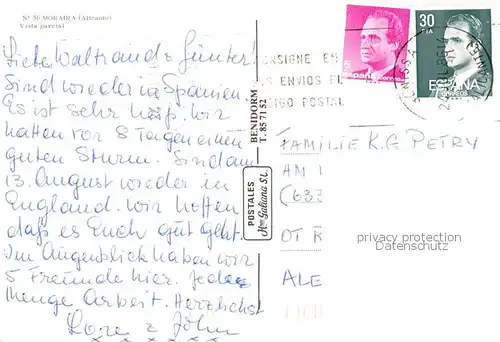 Nº 56 MORAIRA (Alicante)
Vista parcial
Liebe Waltraud & Günter!
Sind wieder in Spanien
Es ist sehr heiß. Wir
hatten vor 8 Tagen einen
guten Sturm. Sind am
13. August wieder in
England. Wir hoffen
daß es Euch gut geht.
Im Augenblick haben wir
5 Freunde hier. Jede
Menge Arbeit. Herzlichst
Lore & John
POSTALES
Hnos Galiana S.L.
BENIDORM
T. 85 71 52
CONSIGNE EN
ENVIOS EL
CODIGO POSTAL
5
España
Correos
30
PTA
ESPAÑA
CORREOS
FAMILIE K.G PETRY
AM
(633
OT
ALE
privacy protection
Datenschutz